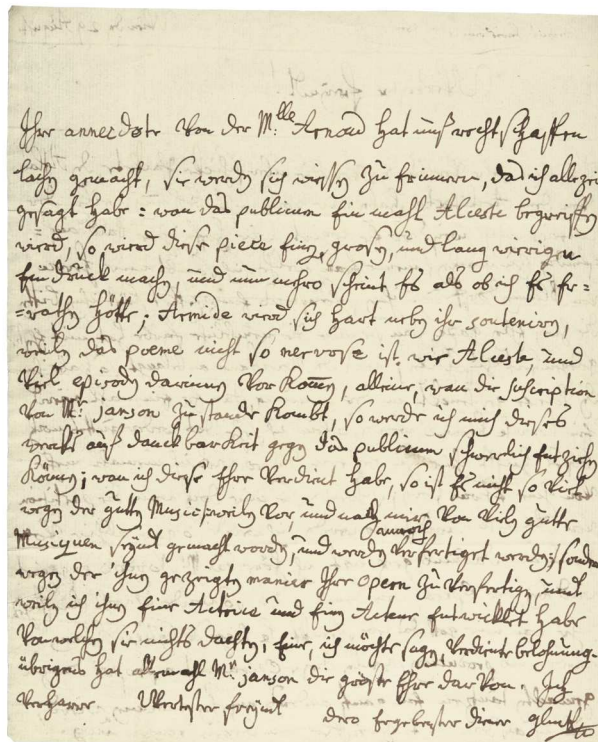 Ihre annecdote von der Mlle Arnoud hat unß rechtschaffen
lachen gemacht, sie werden sich wiessen zu erinnern, daß ich allezeit
gesagt habe: wan das publicum ein mahl Alceste begreiffen
wierd, so wierd diese piece einen grosen, und lang wierigen
Eindruck machen, und nun mehro scheint Es als ob ich Es er-
-rathen hötte; Armide wierd sich hart neben ihr souteniren,
weilen das poeme nicht so nervose ist wie Alceste, und
viel episoden darinnen vor komen, alleine, wan die suscription
von Mr janson zu stande kombt, so werde ich mich dieses
wercks auß danckbarkeit gegen das publicum schwerlich Entziehen
können; wan ich diese Ehre verdient habe, so ist Es nicht so viel
wegen der gutten Music, weilen vor, und nach mir von vielen gutte
Musiquen seynd gemacht worden, und werden annoch verfertiget werden, sondern
wegen der ihnen gezeigten manier Ihre Opern zu verfertigen, und
weilen ich ihnen Eine Actrice und Einen Acteur entwicklet habe
von welchen sie nichts dachten, Eine, ich möchte sagen, verdiente belohnung.
übrigens hat allemahl Mr janson die gröste Ehre darvon. Ich
verharre Wertester freynd dero Ergebenster diener gluck